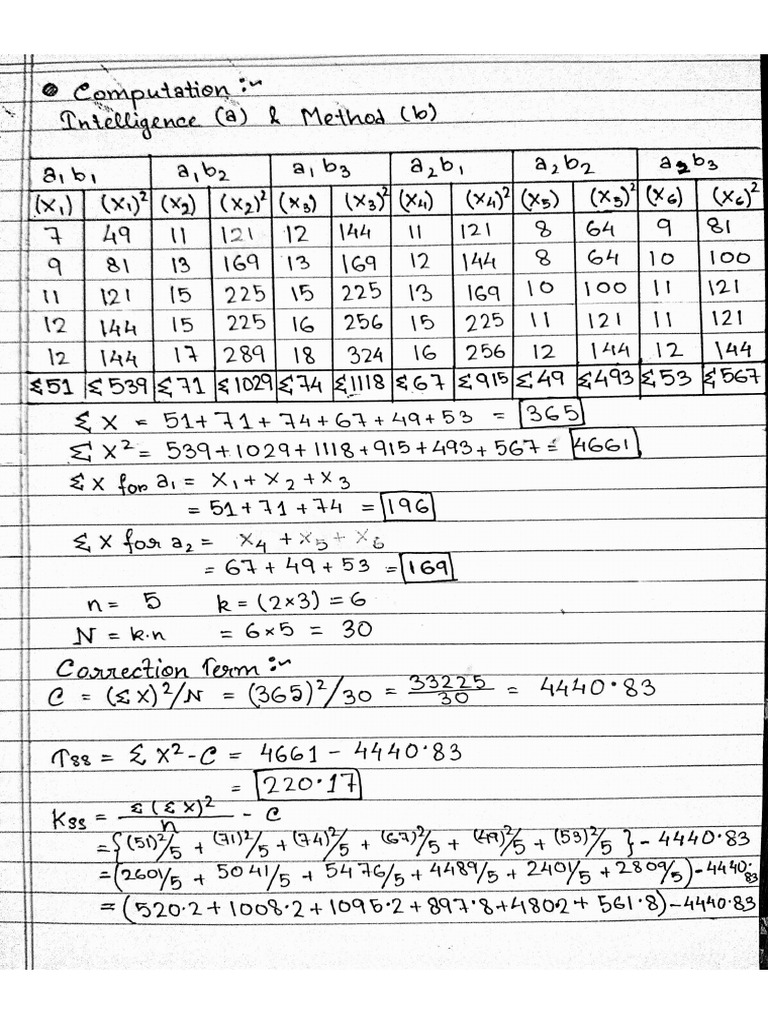 Computation :~
Intelligence (a) & Method (b)
a₁b₁ a₁b₂ a₁b₃ a₂b₁ a₂b₂ a₂b₃
(X₁) (X₁)² (X₂) (X₂)² (X₃) (X₃)² (X₄) (X₄)² (X₅) (X₅)² (X₆) (X₆)²
7 49 11 121 12 144 11 121 8 64 9 81
9 81 13 169 13 169 12 144 8 64 10 100
11 121 15 225 15 225 13 169 10 100 11 121
12 144 15 225 16 256 15 225 11 121 11 121
12 144 17 289 18 324 16 256 12 144 12 144
Σ51 Σ539 Σ71 Σ1029 Σ74 Σ1118 Σ67 Σ915 Σ49 Σ493 Σ53 Σ567
ΣX = 51+71+74+67+49+53 = 365
ΣX² = 539+1029+1118+915+493+567= 4661
ΣX for a₁ = X₁+X₂+X₃
= 51+71+74 = 196
ΣX for a₂ = X₄+X₅+X₆
= 67+49+53 = 169
n = 5 k = (2×3) = 6
N = k.n = 6×5 = 30
Correction Term :~
C = (ΣX)²/N = (365)²/30 = 33225/30 = 4440.83
Tss = ΣX²-C = 4661 - 4440.83
= 220.17
Kss = Σ(ΣX)²/n - C
={(51)²/5 + (71)²/5 + (74)²/5 + (67)²/5 + (49)²/5 + (53)²/5} - 4440.83
=(2601/5 + 5041/5 + 5476/5 + 4489/5 + 2401/5 + 2809/5) - 4440.83
=(520.2+1008.2+1095.2+897.8+4802+561.8)-4440.83